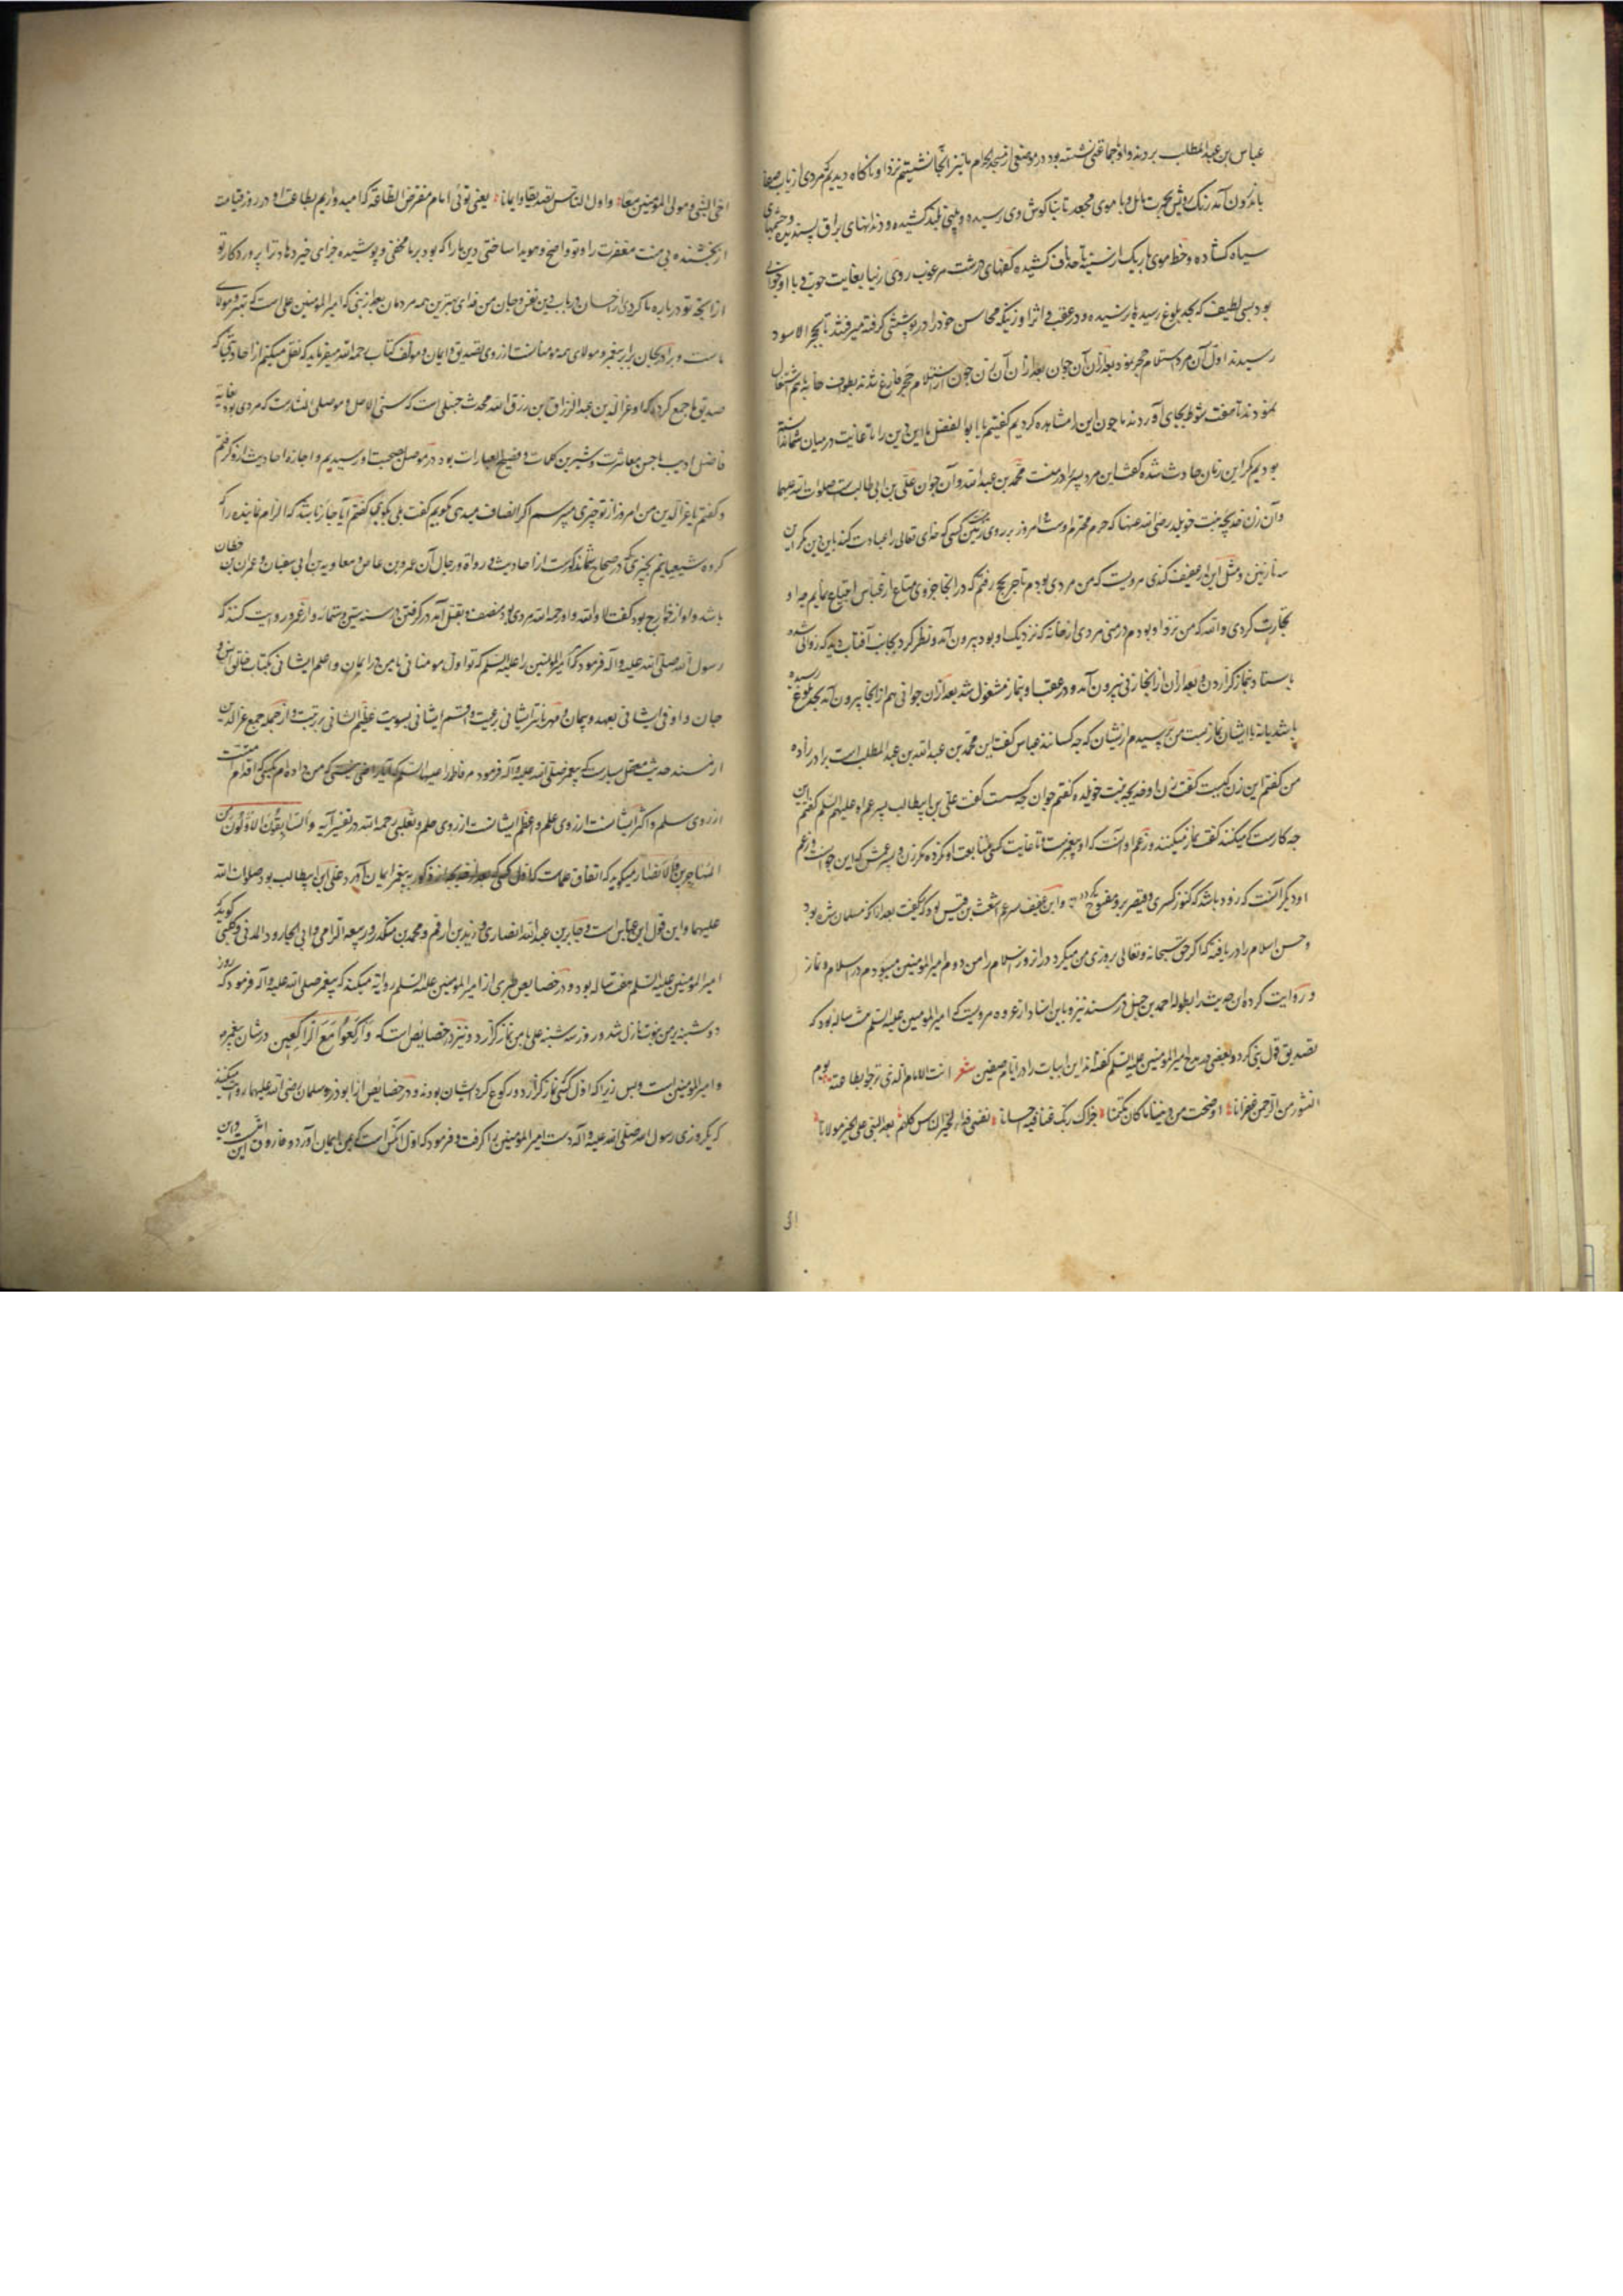 عباس بن عبد المطلب بردند و او با جماعتی نشسته بود در موضعی از مسجد الحرام ما نیز آنجا نشستیم نزد او ناگاه دیدیم که مردی از باب صفا
باندرون آمد رنگ رویش بحمرت مایل و با موی مجعد تا بنا گوش وی رسیده و بینی بلند کشیده و دندانهای براق پسندیده و چشمهای
سیاه گشاده و خط موی باریک از سینه تا بناف کشیده کفهای درشت مرغوب روی زیبا بغایت خوب و با او جوانی
بود بسی لطیف که بحد بلوغ رسیده یا نرسیده و در عقب و اثر او زنی که محاسن خود را در پوشش گرفته میرفتند تا بحجر الاسود
رسیدند اول آن مرد استلام حجر نمود بعد از آن آن جوان بعد از آن آن زن چون از استلام حجر فارغ شدند بطواف خانه هم اشتغال
نمودند تا هفت شوط بجای آوردند ما چون این را مشاهده کردیم گفتیم یا ابا الفضل ما این دین را تا غایت در میان شما ندانسته
بودیم مگر این زمان حادث شده گفت این مرد پسر برادر منست محمد بن عبد الله و آن جوان علی بن ابی طالب است صلوات الله علیهما
و آن زن خدیجه بنت خویلد رضی الله عنها که حرم محترم اوست و امروز بر روی زمین کسی که خدای تعالی را عبادت کند باین دین مگر این
سه نازنین و مثل این از عفیف کندی مرویست که من مردی بودم تاجر بحج رفتم که در آنجا جزوی متاع از عباس ابتیاع نمایم چه او
تجارت کردی و الله که من نزد او بودم در منی مردی از خانه که نزدیک او بود بیرون آمد و نظر کرد بجانب آفتاب دید که زوالی شده
بایستاد بنماز گزاردن و بعد از آن از آنجا زنی بیرون آمد و در عقب او بنماز مشغول شد بعد از آن جوانی هم از آنجا بیرون آمد بحد بلوغ رسیده
باشد یا نه با ایشان نماز بست من پرسیدم از ایشان که چه کسانند عباس گفت این محمد بن عبد الله بن عبد المطلب است برادر زاده
من گفتم این زن کیست گفت زن او خدیجه بنت خویلد گفتم جوان چه کسست گفت علی بن ابیطالب پسر عم او علیهم السلم گفتم این
چه کارست که میکنند گفت نماز میکنند و زعم او آنست که او پیغمبرست و تا غایت کسی متابعت او نکرده مگر زن و پسر عمش که این جوانست و زعم
او دیگر آنست که زود باشد که کنوز کسری و قیصر برو مفتوح گردد و این عفیف پسر عم اشعث بن قیس بود که میگفت بعد از آنکه مسلمان شده بود
و حسن اسلام را دریافته که اگر حق سبحانه و تعالی روزی من میکرد در آنروز اسلام را من دوم امیر المومنین میبودم در اسلام و نماز
و روایت کرده این حدیث را بطوله احمد بن حنبل در مسند نیز و باین اسناد از عروه مرویست که امیر المومنین علیه السلم هشت ساله بود که
تصدیق قول نبی کرد و بعضی در مدح امیر المومنین علیه السلم گفته اند این ابیات را در ایام صفین شعر انت الامام الذی نرجو بطاعته یوم
النشور من الرحمن غفرانا اوضحت من دیننا ما کان مکتتما جزاک ربک عنا فیه احسانا نفسی فداء لخیر الناس کلهم بعد النبی علی الخیر مولانا
اخی
اخی النبی و مولی المؤمنین معا و اول الناس تصدیقا و ایمانا یعنی توئی امام مفترض الطاعة که امید داریم بطاعت او در روز قیامت
از بخشنده بی منت مغفرت را و تو واضح و هویدا ساختی دین ما را که بود بر ما مخفی و پوشیده جزای خیر دهاد ترا پروردگار تو
از آنچه تو درباره ما کردی از احسان در باب دین نفس و جان من فدای بهترین همه مردمان بعد از نبی که امیر المومنین علی است که بهتر و مولای
ماست و برادر بجان برابر پیغمبر و مولای همه مومنانست از روی تصدیق و ایمان و مولف کتاب رحمه الله میفرماید که نقل میکنم از احادیثی که
صدیق ما جمع کرده که او عز الدین عبد الرزاق بن رزق الله محدث حنبلی است که سنی الاصل و موصلی المنشاست که مردی بود بغایة
فاضل ادیب با حسن معاشرت و شیرین کلمات و فصیح العبارات بود در موصل بصحبت او رسیدیم و اجازه احادیث ازو گرفتم
و گفتم یا عز الدین من امروز از تو چیزی میپرسم اگر انصاف میدهی بگویم گفت بلی بگوی گفتم آیا جائز باشد که الزام نمایند را که
گروه شیعیایم بچیزی که در صحاح شما مذکورست از احادیث و رواة و رجال آن عمرو بن عاص و معاویه بن ابی سفیان و عمران بن حطان
باشد و او از خوارج بود گفت لا و الله و او رحمه الله مردی بود منصف و بقتل آمد در گرفتن در سنه ستین و ستمائه و از عمر روایت کند که
رسول الله صلی الله علیه و اله فرمود که امیر المومنین را علیه السلم که تو اول مومنانی بامن در ایمان و اعلم ایشانی بکتاب خالق انس و
جان و اوفی ایشانی بعهد و پیمان و مهربانتر ایشانی برعیت و اقسم ایشانی بسویت عظیم الشانی برتبت و از جمله جمع عز الدین
از مسند حدیث معقل یسارست که پیغمبر صلی الله علیه و آله فرمود مر فاطمه را علیها السلم که آیا راضی نیستی که من داده ام بکسی که اقدم امتست
از روی سلم و اکثر ایشانست از روی علم و اعظم ایشانست از روی حلم و ثعلبی رحمه الله در تفسیر آیه وَالسَّابِقُونَ الْأَوَّلُونَ مِنَ
الْمُهَاجِرِينَ وَالْأَنْصَارِ میگوید که اتفاق علماست که اول کسی که بعد از خدیجه از ذکور به پیغمبر ایمان آورد علی ابن ابیطالب بود صلوات الله
علیهما و این قول ابن عباس است و جابر بن عبد الله انصاری و زید بن ارقم و محمد بن منکدر و ربیعه الرامی و ابی الجارود المدنی و کلبی گوید که
امیر المومنین علیه السلم هفت ساله بود و در خصایص طبری از امیر المومنین علیه السلم روایة میکند که پیغمبر صلی الله علیه و آله فرمود که روز
دوشنبه بر من نبوت نازل شد و روز سه شنبه علی با من نماز گزارد و نیز در خصایص است که وَارْكَعُوا مَعَ الرَّاكِعِينَ در شان پیغمبر
و امیر المومنین است و بس زیرا که اول کسی نماز گزارد و رکوع کرد ایشان بودند و در خصایص از ابوذر و سلمان رضی الله علیهما روایت میکنند
که یکروزی رسول الله صلی الله علیه و آله دست امیر المومنین را گرفت و فرمود که اول آنکس است که بمن ایمان آورد و فاروق این امتست و این